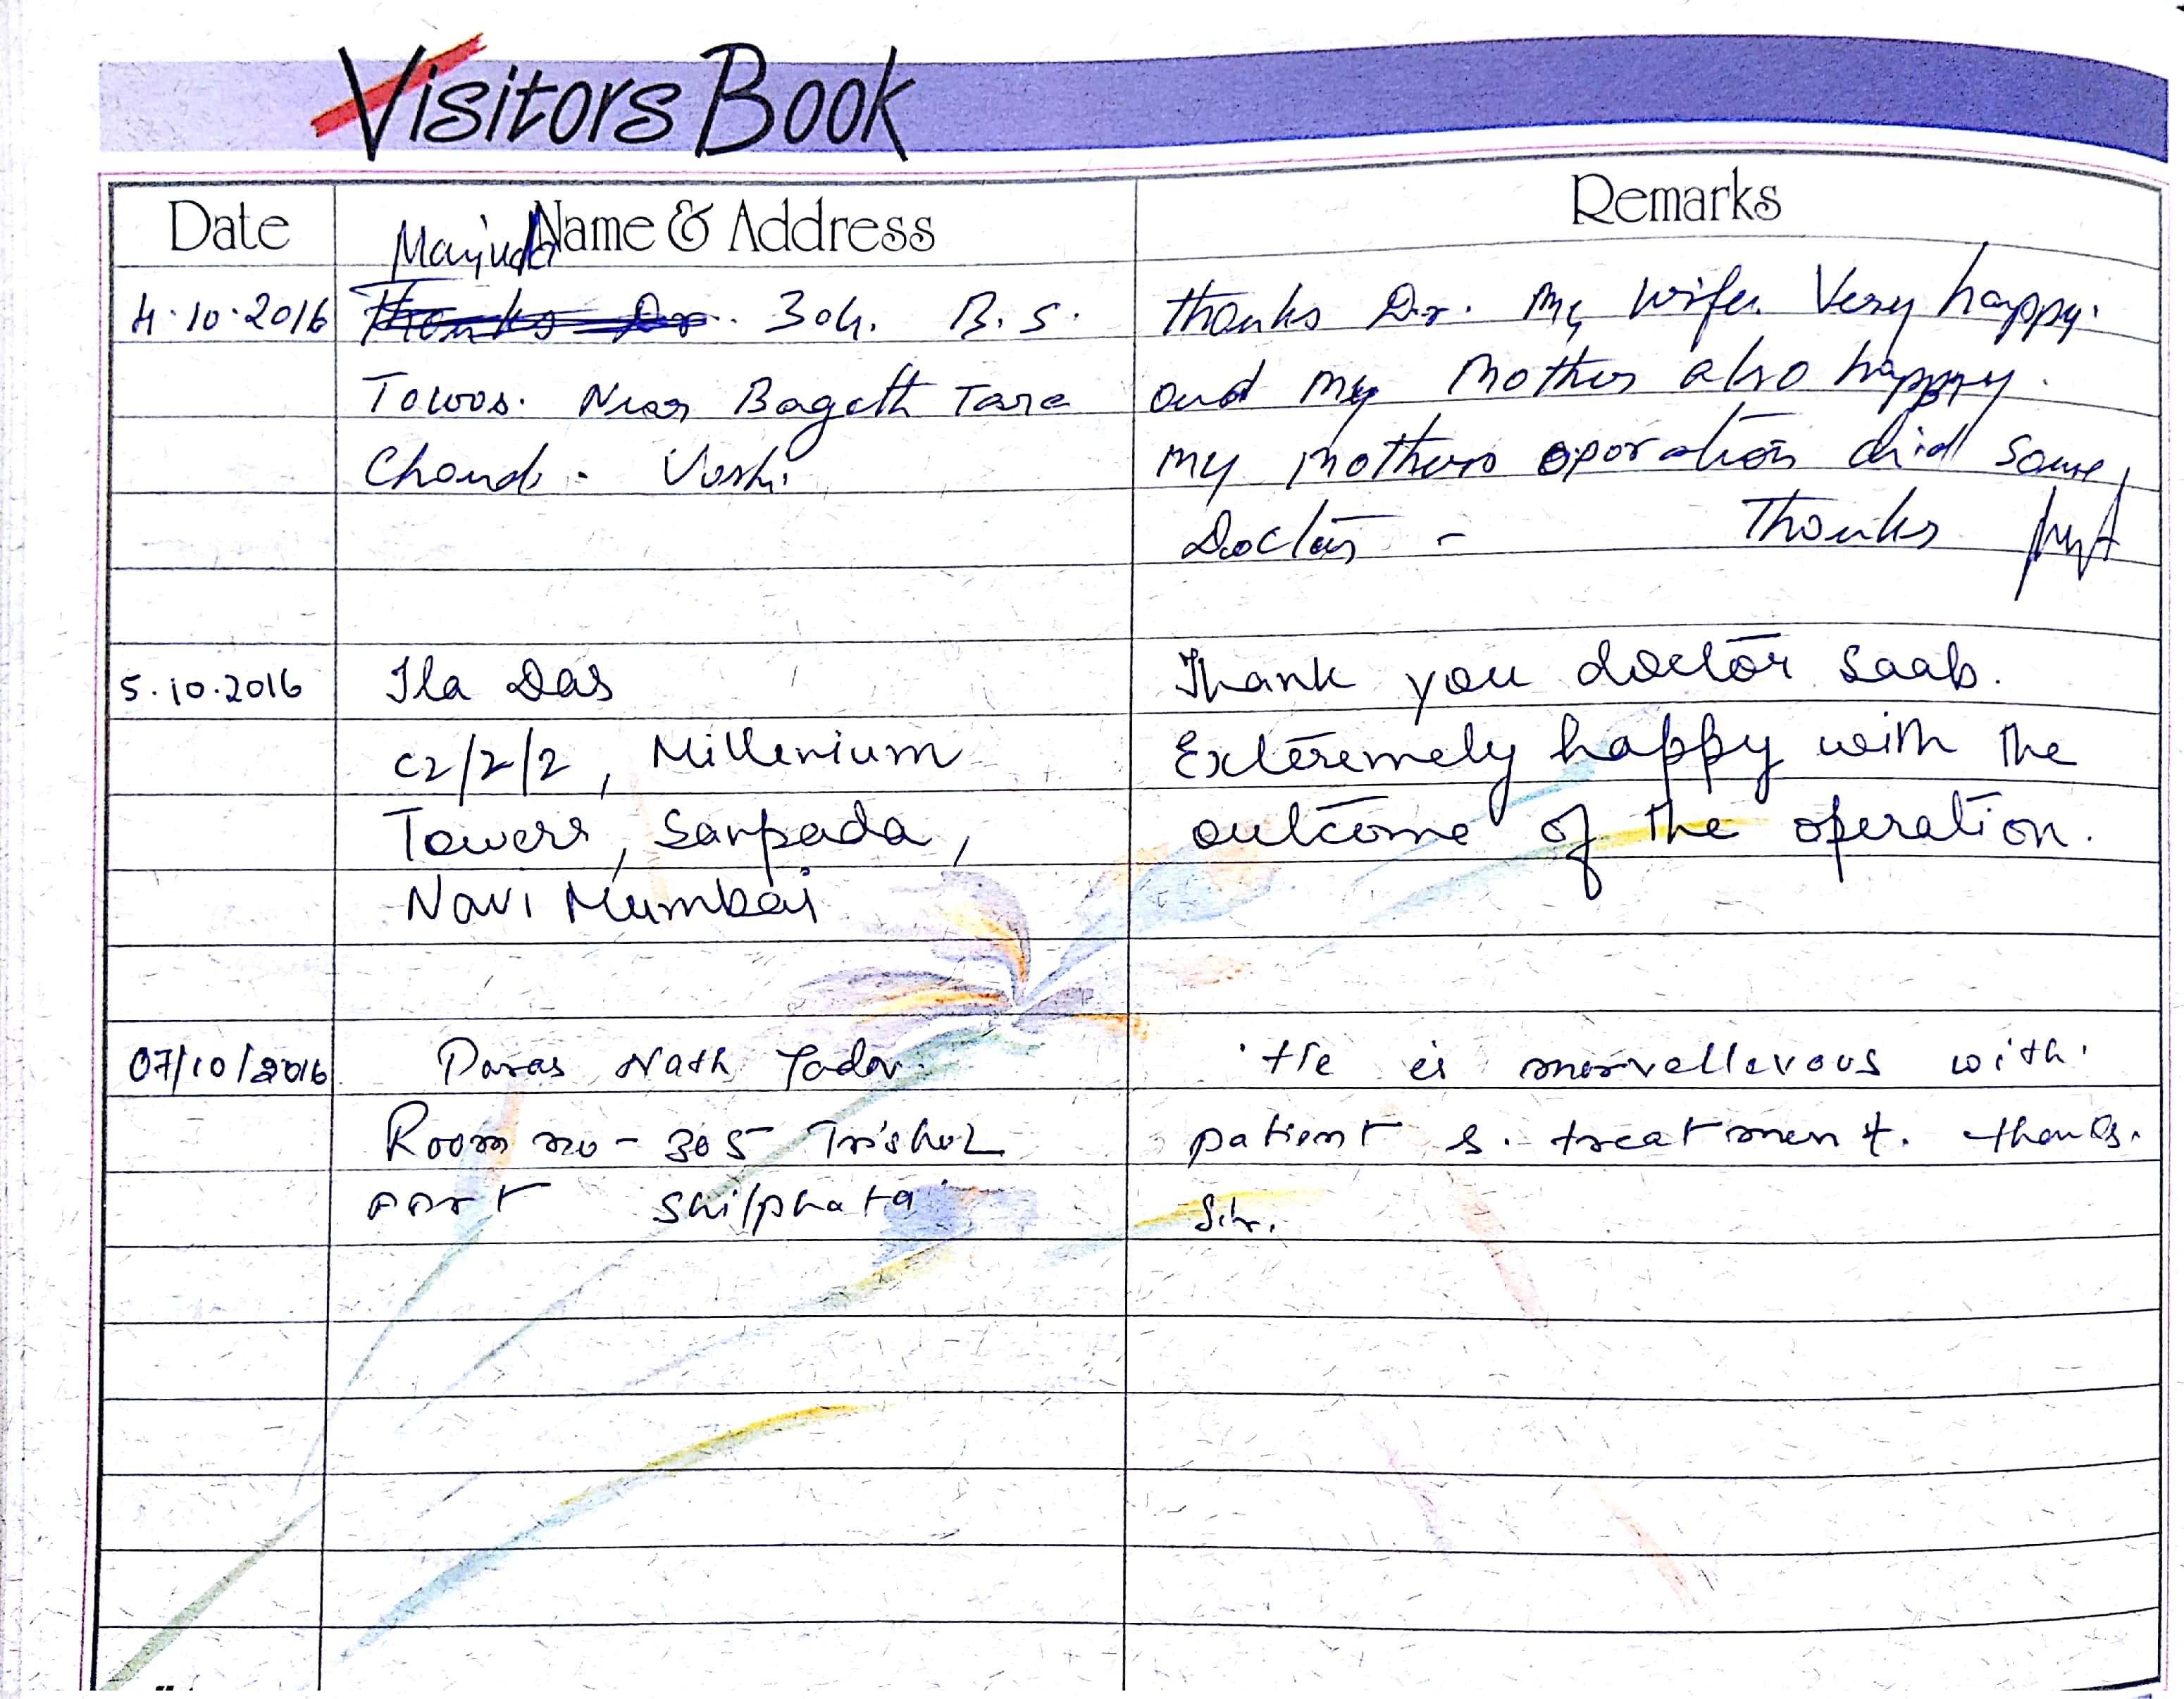 Visitors Book
Date Name & Address Remarks
4.10.2016 Thanks Dr. 304. B.S. thanks Dr. My wife. Very happy.
Near Tara and my Mother also happy.
Chand. Vashi my mothers oporation did same
Doctor - Thanks
5.10.2016 Ila Das Thank you doctor saab.
C2/2/2, Millenium Exteremely happy with the
Towers, Sanpada, outcome of the operation.
Navi Mumbai
07/10/2016 Paras Nath Yadav. He is morvellevous with
Room no - 305 Trishul patient &. treatment. thanks.
Shilphata Sir.